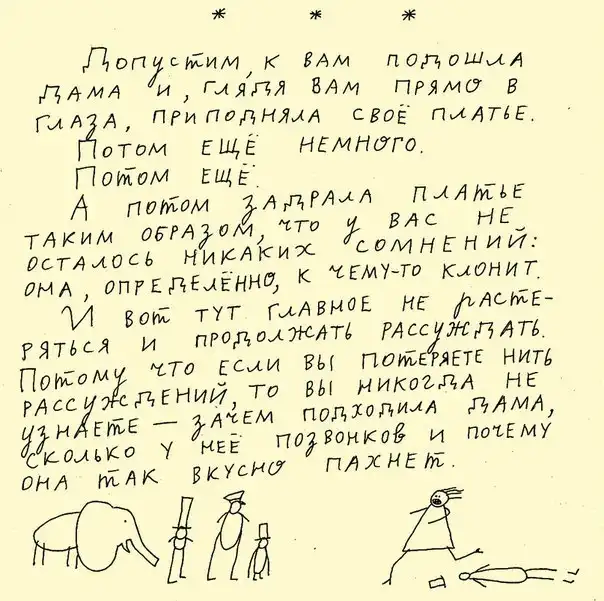 * * *
Допустим, к вам подошла
дама и, глядя вам прямо в
глаза, приподняла своё платье.
Потом ещё немного.
Потом ещё.
А потом задрала платье
таким образом, что у вас не
осталось никаких сомнений:
она, определённо, к чему-то клонит.
И вот тут главное не расте-
ряться и продолжать рассуждать.
Потому что если вы потеряете нить
рассуждений, то вы никогда не
узнаете — зачем подходила дама,
сколько у неё позвонков и почему
она так вкусно пахнет.